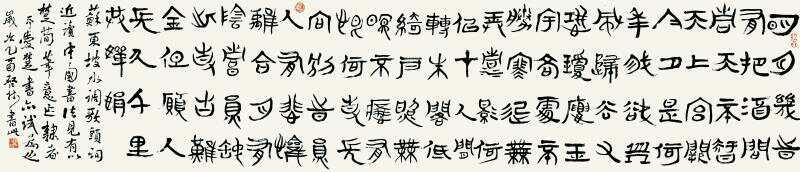 明月幾時
有把酒問
青天不知
天上宮闕
今夕是何
年我欲乘
風歸去又
恐瓊樓玉
宇高處不
勝寒起舞
弄清影何
似在人間
轉朱閣低
綺戶照無
眠不應有
恨何事長
向別時圓
人有悲歡
離合月有
陰晴圓缺
此事古難
全但願人
長久千里
共嬋娟
蘇東坡水調歌頭詞
近讀中國書法見有以
楚簡筆意作隸者
愛楚書亦試為也
歲次乙酉